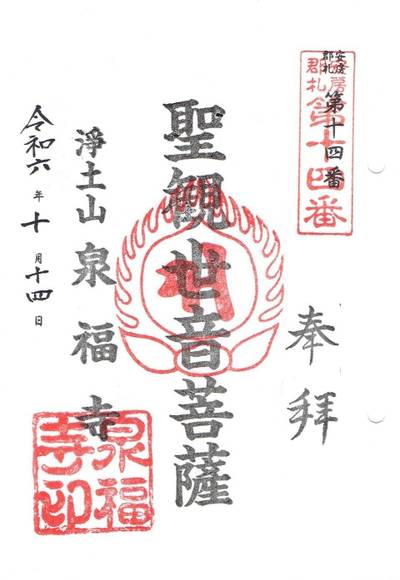 安房郡札 第十四番
安房郡札 第十四番
奉拝
聖観世音菩薩
浄土山 泉福寺
泉福寺印
令和六年十月十四日